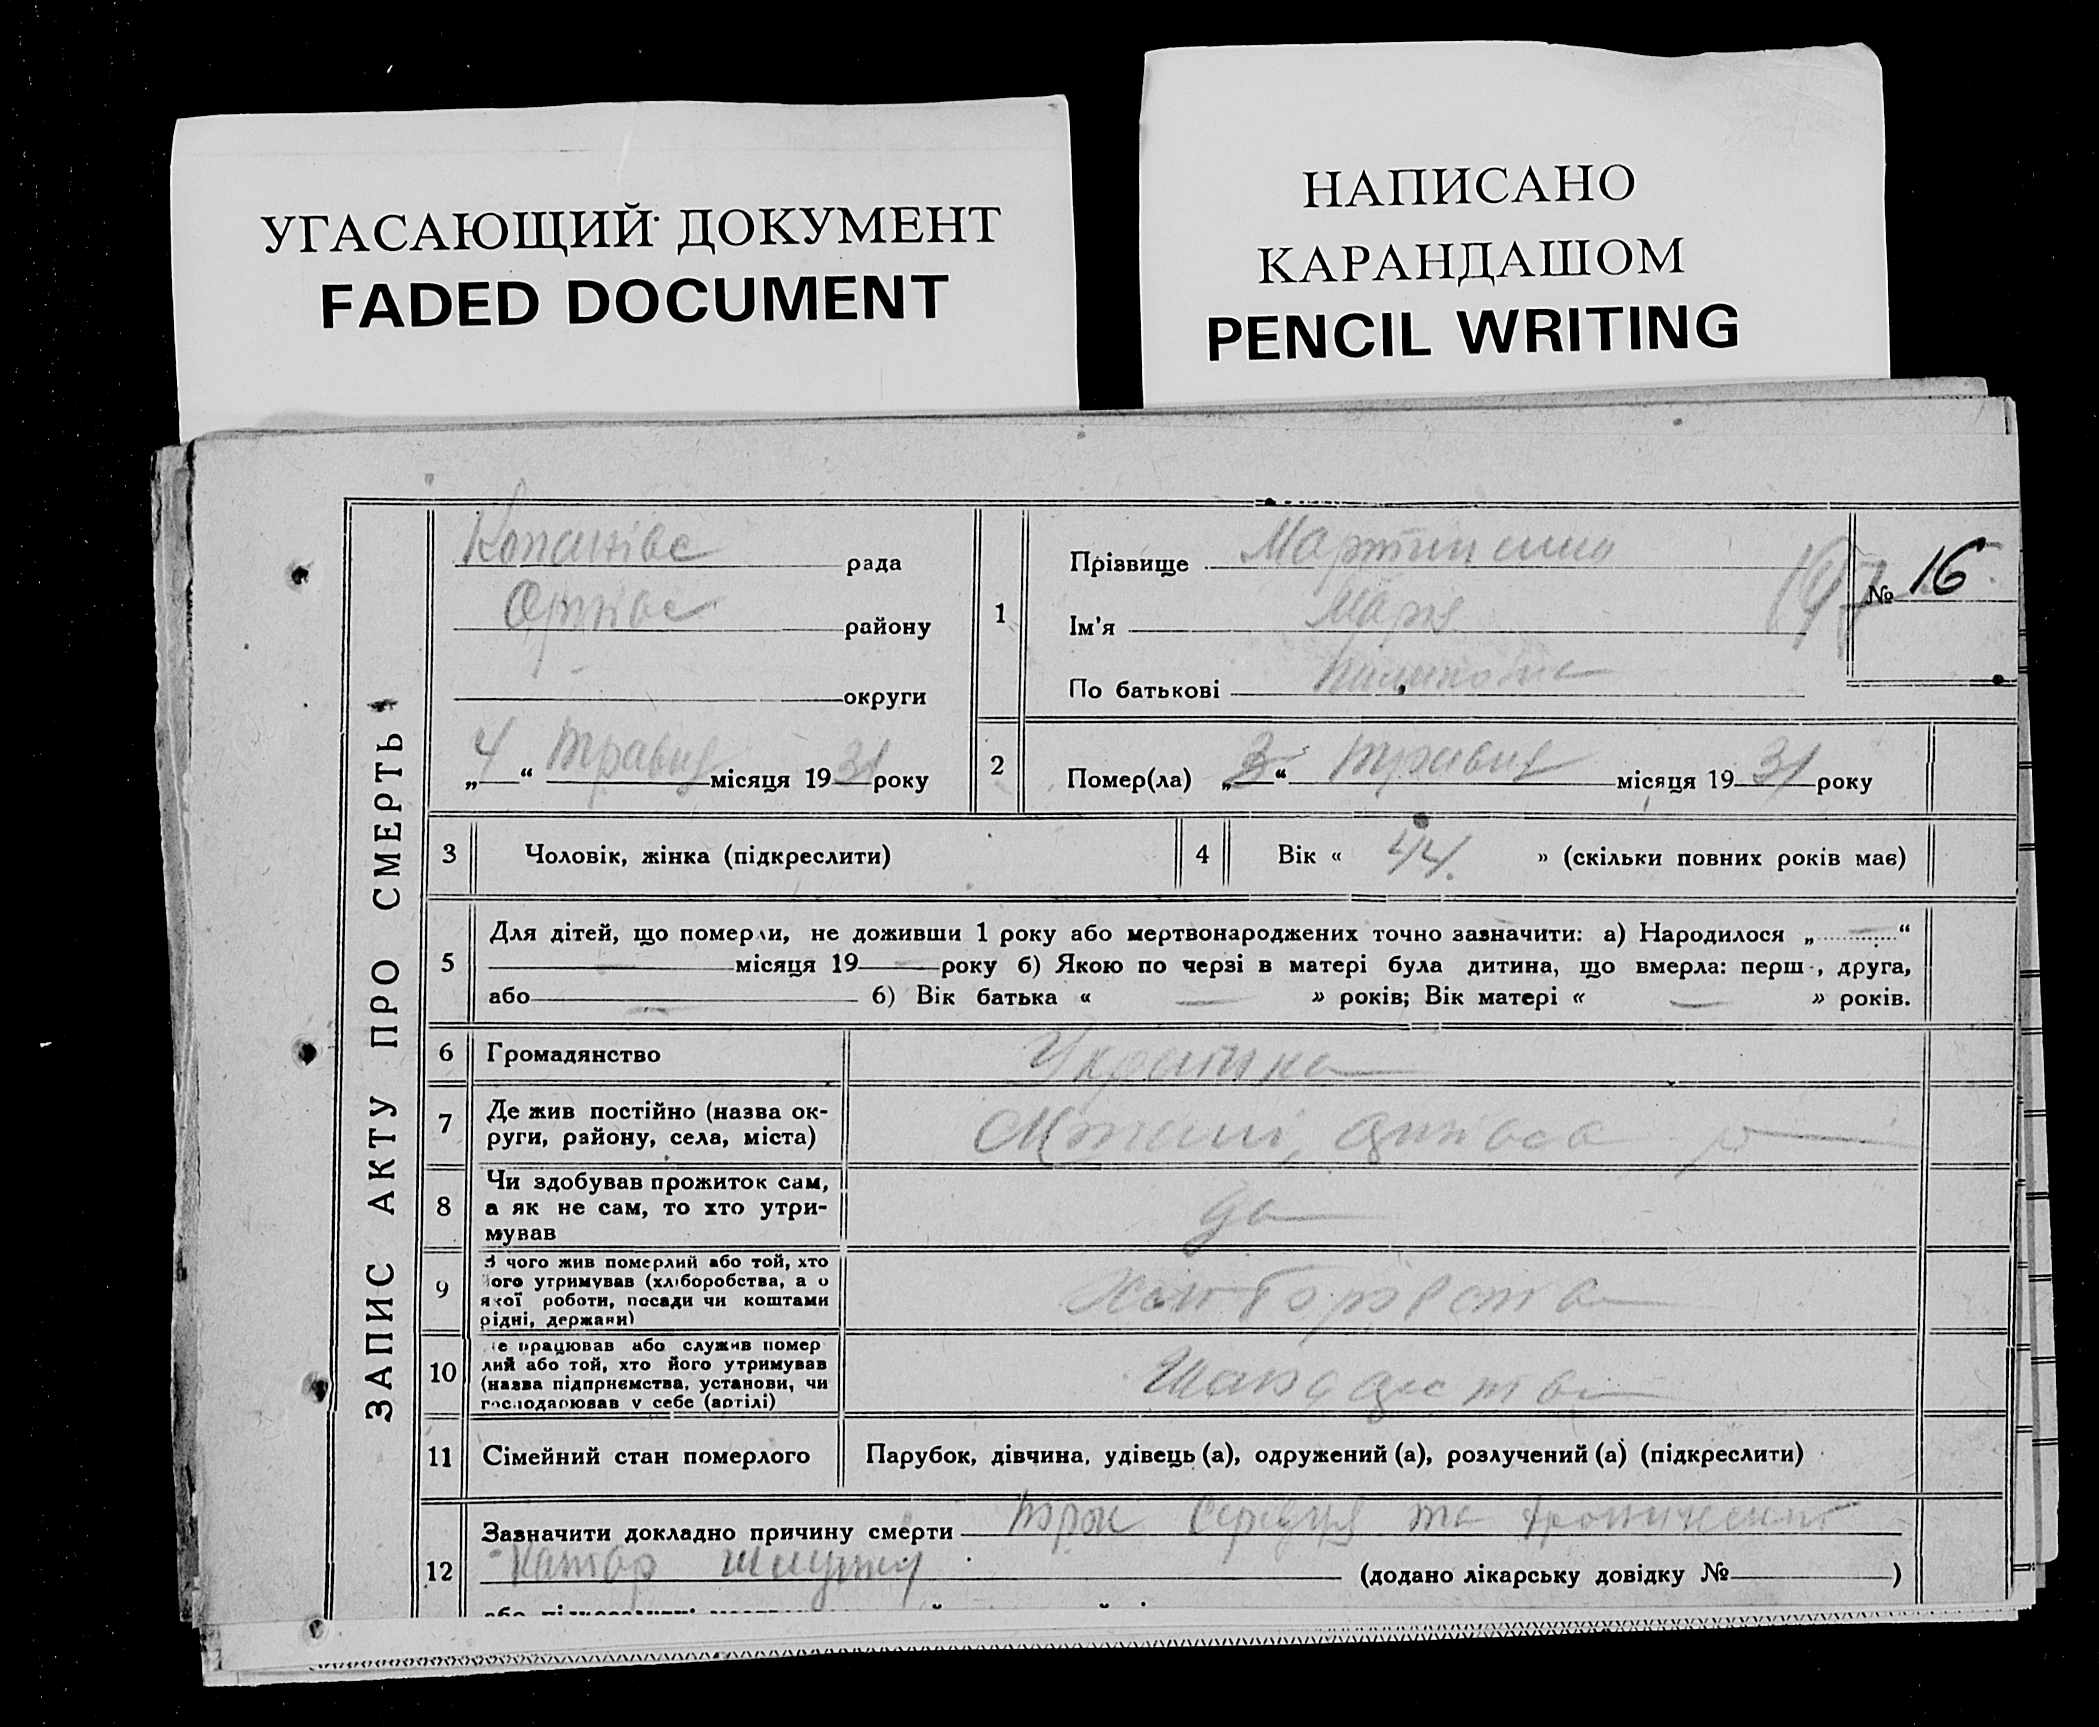 УГАСАЮЩИЙ ДОКУМЕНТ
FADED DOCUMENT
НАПИСАНО
КАРАНДАШОМ
PENCIL WRITING
ЗАПИС АКТУ ПРО СМЕРТЬ
Копанівс рада
району
округи
„4“ травня місяця 1931 року
1
Прізвище
Ім'я Марія
По батькові
№ 16
2
Помер(ла) „3“ травня місяця 1931 року
3 Чоловік, жінка (підкреслити)
4 Вік « 44. » (скільки повних років має)
5
Для дітей, що померли, не доживши 1 року або мертвонароджених точно зазначити: а) Народилося „ — “
— місяця 19 — року б) Якою по черзі в матері була дитина, що вмерла: перш , друга,
або — б) Вік батька « — » років; Вік матері « — » років.
6 Громадянство Українка
7
Де жив постійно (назва ок-
руги, району, села, міста)
8
Чи здобував прожиток сам,
а як не сам, то хто утри-
мував
да
9
З чого жив померлий або той, хто
його утримував (хліборобства, а о
якої роботи, посади чи коштами
рідні, держави)
Хліборобства
10
е працював або служив помер
лий або той, хто його утримував
(назва підприємства, установи, чи
господарював у себе (артілі)
11 Сімейний стан померлого Парубок, дівчина, удівець (а), одружений (а), розлучений (а) (підкреслити)
12
Зазначити докладно причину смерти порок Сердця та хронический
Катар шлунку (додано лікарську довідку № )